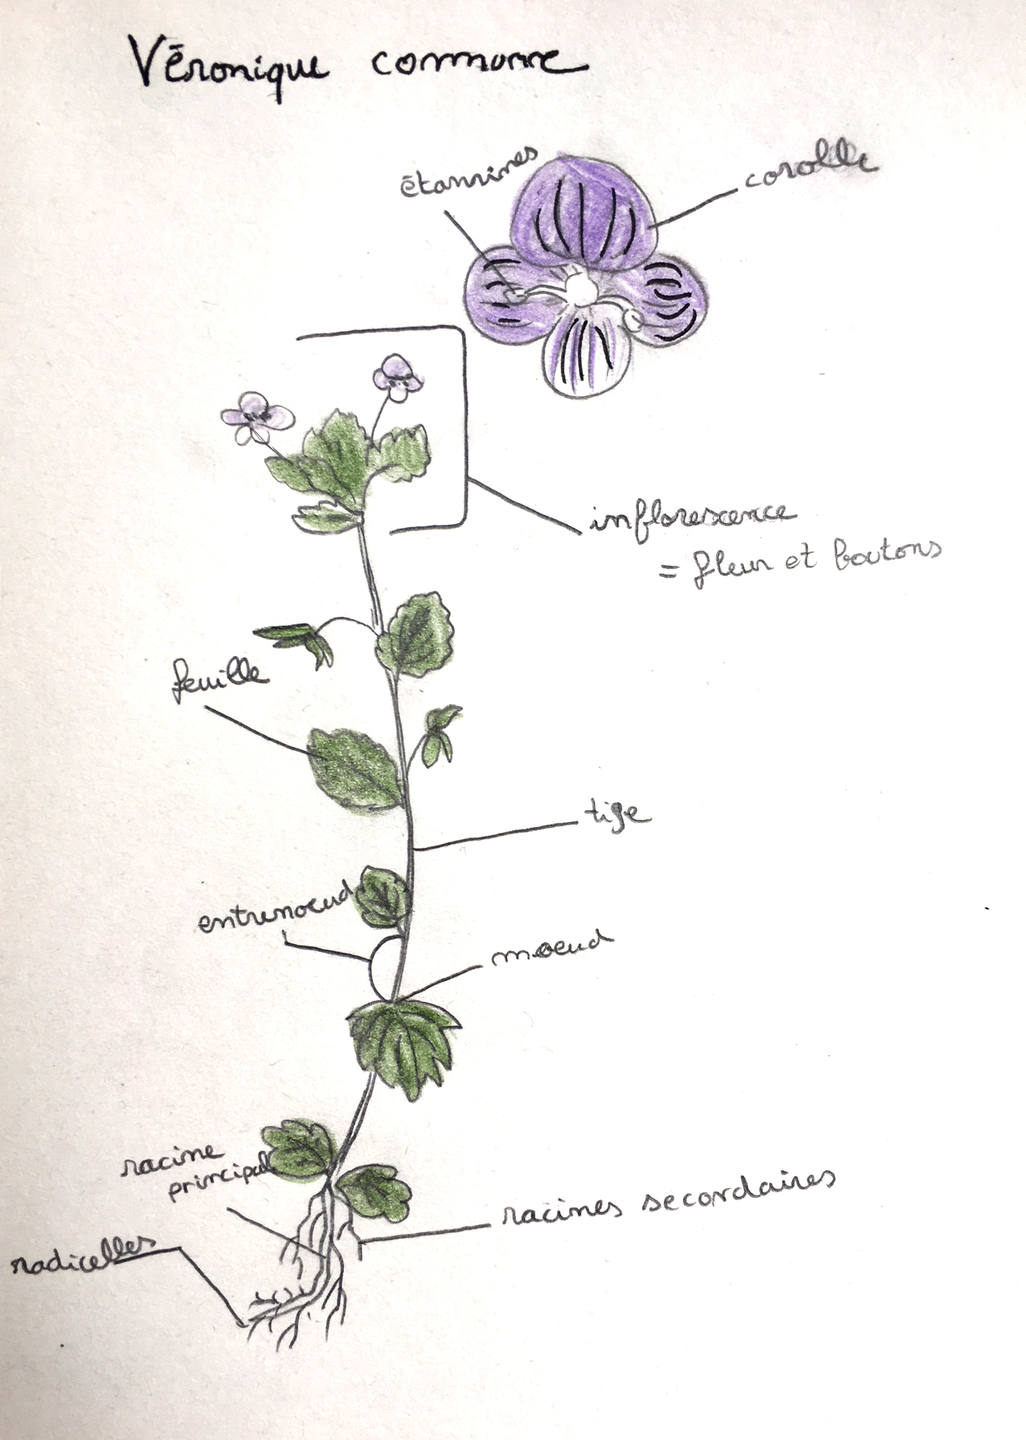 Véronique commune
étamines
corolle
inflorescence
= fleur et boutons
feuille
tige
entrenoeud
noeud
racine
principale
racines secondaires
radicelles